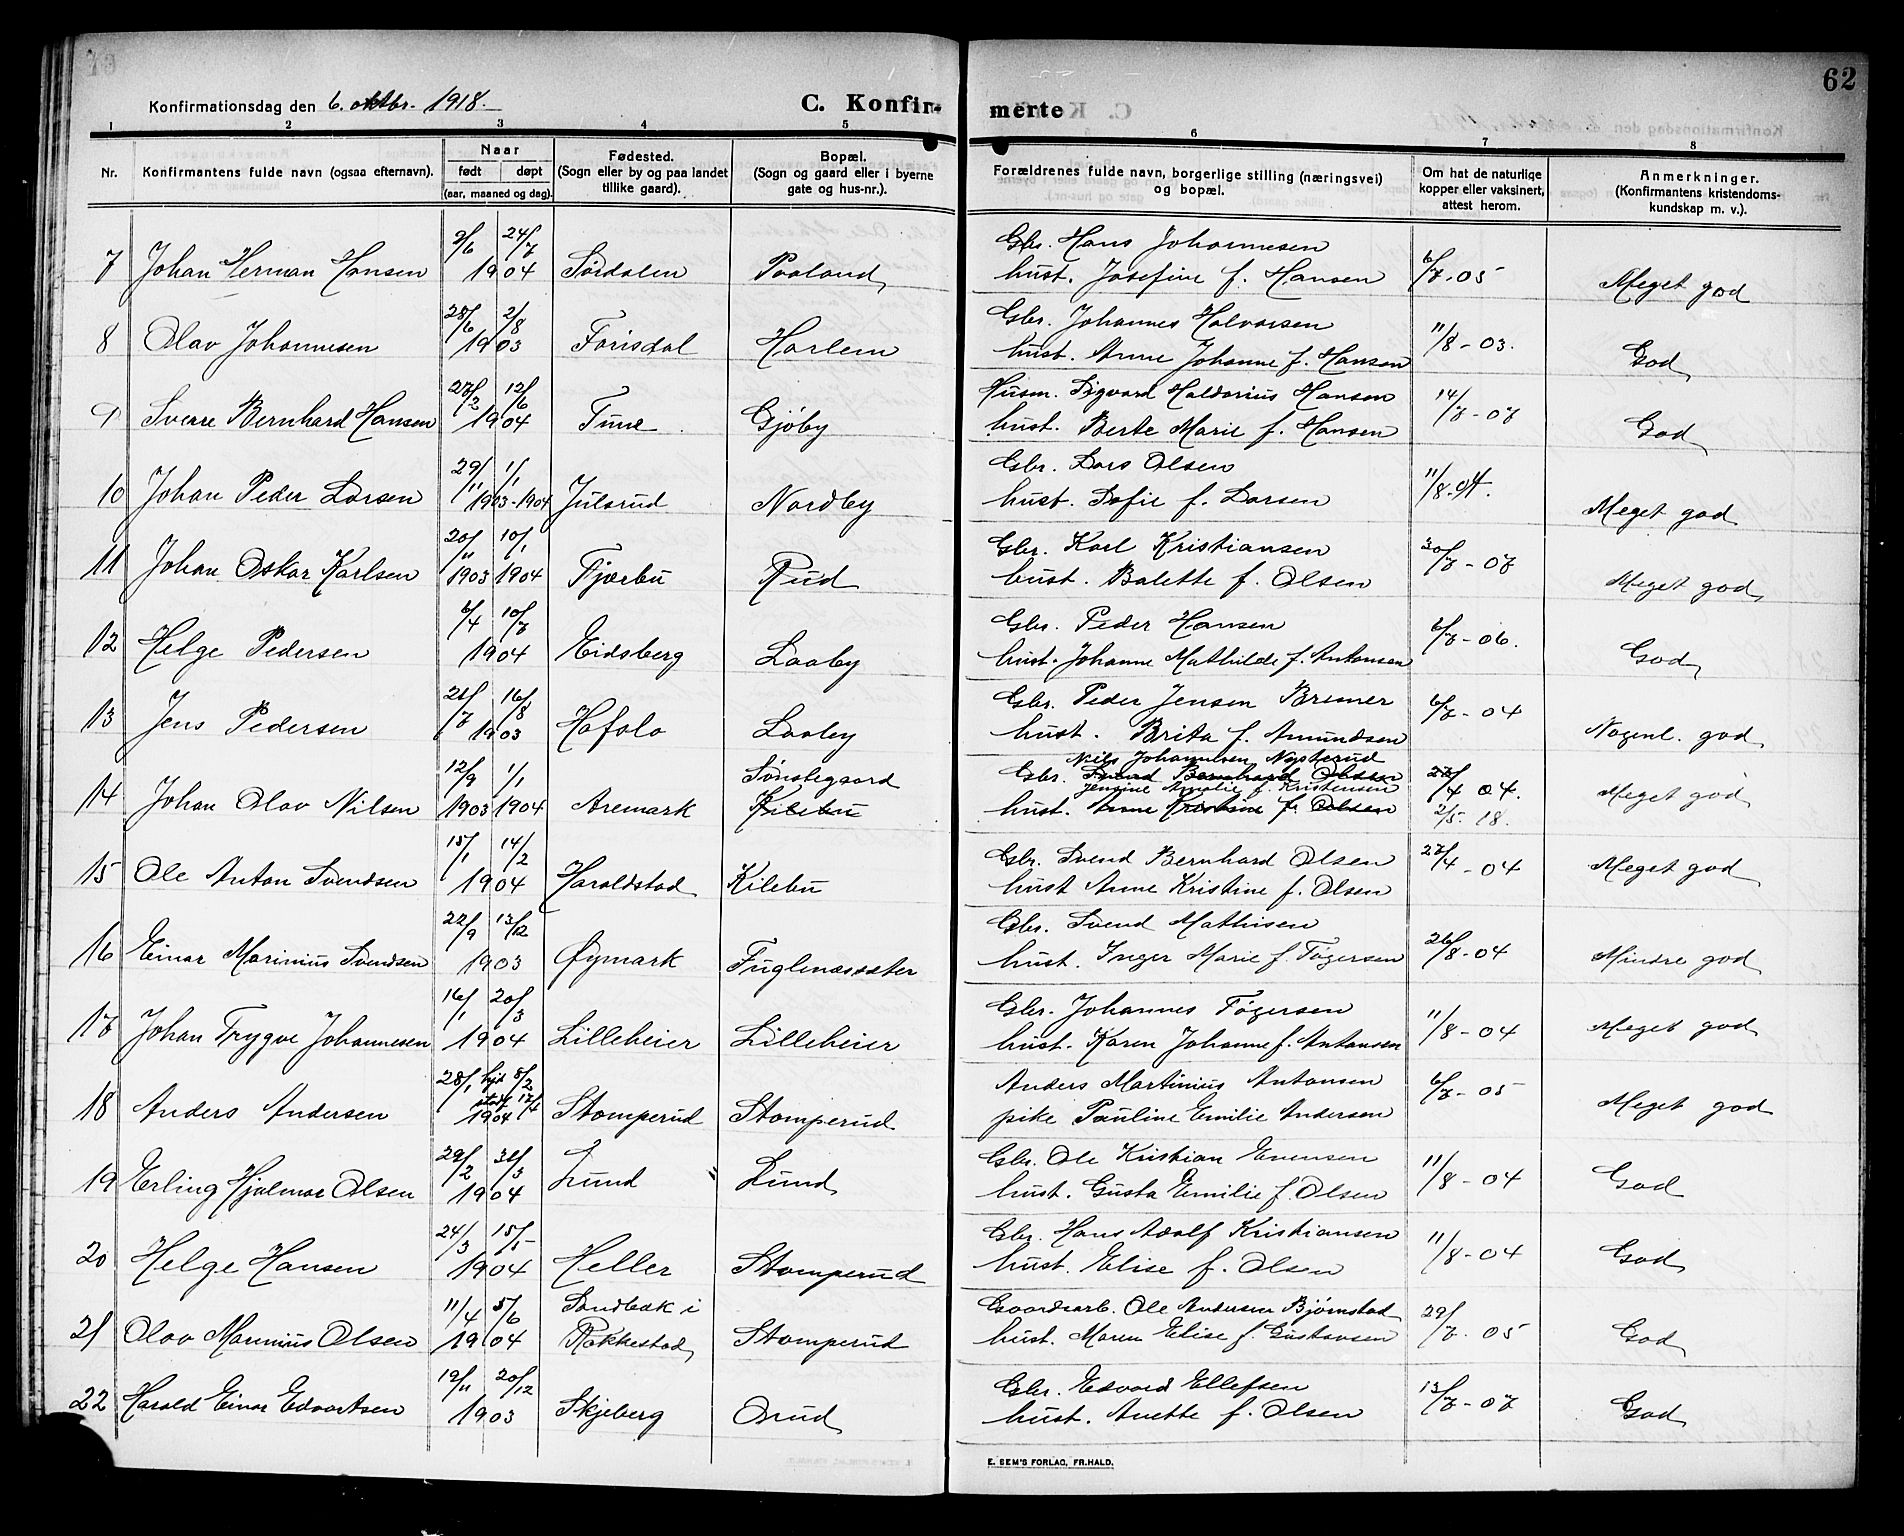 62
Konfirmationsdag den 6. oktbr. 1918.
C. Konfir-merte
1 2 3 4 5 6 7 8
Nr.
Konfirmantens fulde navn (ogsaa efternavn).
Naar
født døpt
(aar, maaned og dag).
Fødested.
(Sogn eller by og paa landet
tillike gaard).
Bopæl.
(Sogn og gaard eller i byerne
gate og hus-nr.).
Forældrenes fulde navn, borgerlige stilling (næringsvei)
og bopæl.
Om hat de naturlige
kopper eller vaksinert,
attest herom.
Anmerkninger.
(Konfirmantens kristendoms-
kundskap m. v.).
9/6 24/7 Gbr. Hans Johannesen
7 Johan Herman Hansen 1904 Sørdalen Paaland hust. Josefine f. Hansen 6/7-05 Meget god
28/6 2/8 Gbr. Johannes Halvorsen
8 Olav Johannesen 1903 Harlem hust. Anne Johanne f. Hansen 11/8-03. God
27/2 12/6 Husm. Sigvard Haldorius Hansen
9 Sverre Bernhard Hansen 1904 Tune Gjøby hust. Berte Marie f. Hansen 14/7-07 God
29/11 1/1 Gbr. Lars Olsen
10 Johan Peder Larsen 1903-1904 Julsrud Nordby hust. Sofie f. Larsen 11/8-04. Meget god
20/11 10/1 Gbr. Karl Kristiansen
11 Johan Oskar Karlsen 1903 1904 Fjærbu Rud hust. Balette f. Olsen 30/7-07 Meget god
6/4 10/7 Gbr. Peder Hansen
12 Helge Pedersen 1904 Eidsberg Laaby hust. Johanne Mathilde f. Antonsen 6/7-06. God
21/7 16/8 Gbr. Peder Jensen Bremer
13 Jens Pedersen 1903 Hafslo Laaby hust. Brita f. Amundsen 6/7-04 Nogenl. god
Nils Johannesen Nysterud
12/9 1/1 Sønstegaard Gbr. Svend Bernhard Olsen
Jensine Amalie f. Kristensen
14 Johan Olav Nilsen 1903 1904 Aremark Kilebu hust. Anne Kristine f. Olsen 27/4 04. 2/5-18. Meget god
15/1 14/2 Gbr. Svend Bernhard Olsen
15 Ole Anton Svendsen 1904 Haraldstad Kilebu hust Anne Kristine f. Olsen 27/4-04 Meget god
22/9 13/12 Gbr. Svend Mathisen
16 Einar Marinius Svendsen 1903 Øymark Fuglenessæter hust. Inger Marie f. Føgersen 26/8-04 Mindre god
16/1 20/3 Gbr. Johannes Føgersen
17 Johan Trygve Johannesen 1904 Lilleheier Lilleheier hust. Karen Johanne f. Antonsen 11/8-04 Meget god
28/1 hjd 5/2 stadf. 17/4 Anders Martinius Antonsen
18 Anders Andersen 1904 Stomperud Stomperud pike Pauline Emilie Andersen 6/7-05 Meget god
29/2 31/3 Gbr. Ole Kristian Evensen
19 Erling Hjalmar Olsen 1904 Lund Lund hust. Gusta Emilie f. Olsen 11/8-04 God
24/3 15/5 Gbr. Hans Adolf Kristiansen
20 Helge Hansen 1904 Heller Stomperud hust. Elise f. Olsen 11/8-04 God
11/4 5/6 Sandbæk i Gaardsarb. Ole Andersen Bjørnstad
21 Olav Marinius Olsen 1904 Rakkestad Stomperud hust. Maren Elise f. Gustavsen 29/7-05 God
19/11 20/12 Gbr. Edvard Ellefsen
22 Harald Einar Edvartsen 1903 Skjeberg Orud hust. Anette f. Olsen 13/7-07 God
E. SEM'S FORLAG, FR.HALD.